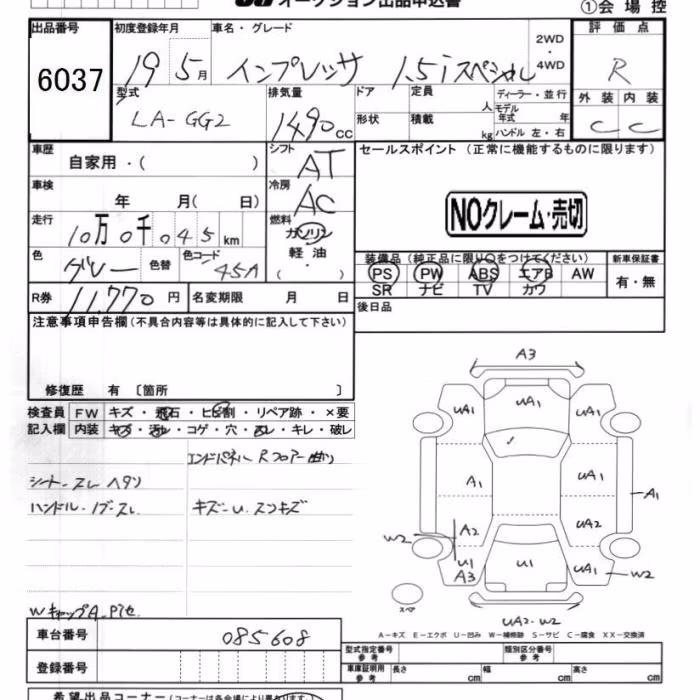 オークション出品申込書
①会場控
出品番号 初度登録年月 車名・グレード 2WD ・ 4WD 評価点
6037 19 5月 インプレッサ 1.5iスペシャル R
型式 排気量 ドア 定員 人 ディーラー・並行 外装 内装
LA-GG2 1490cc 形状 積載 kg モデル年式 年 ハンドル 左・右 C C
車歴 自家用・( ) シフト AT セールスポイント (正常に機能するものに限ります)
車検 年 月( 日) 冷房 AC
NOクレーム・売切
走行 10万0千045km 燃料 ガソリン 軽油 ( )
色 グレー 色替 色コード 45A
装備品 (純正品に限り○をつけてください) 新車保証書
PS PW ABS エアB AW 有・無
SR ナビ TV カワ
R券 11,770円 名変期限 月 日 後日品
注意事項申告欄(不具合内容等は具体的に記入して下さい)
修復歴 有 〔箇所 〕
検査員 FW キズ・飛石・ヒビ割・リペア跡・×要
記入欄 内装 キズ・汚れ・コゲ・穴・スレ・キレ・破レ
エンドパネル Rフロアー曲り
シート・スレ ヘタリ
ハンドル・ノブ・スレ キズ・U. スンキズ
A3
UA1 UA1 UA1
A1 UA1 A1
A2 UA2
W2
U1 U1 UA1 W2
A3
スペア
UA2-W2
A-キズ E-エクボ U-凹み W-補修跡 S-サビ C-腐食 XX-交換済
車台番号 085608
型式指定番号 参考 類別区分番号 参考
登録番号 車庫証明用 参考 長さ cm 幅 cm 高さ cm
希望出品コーナー